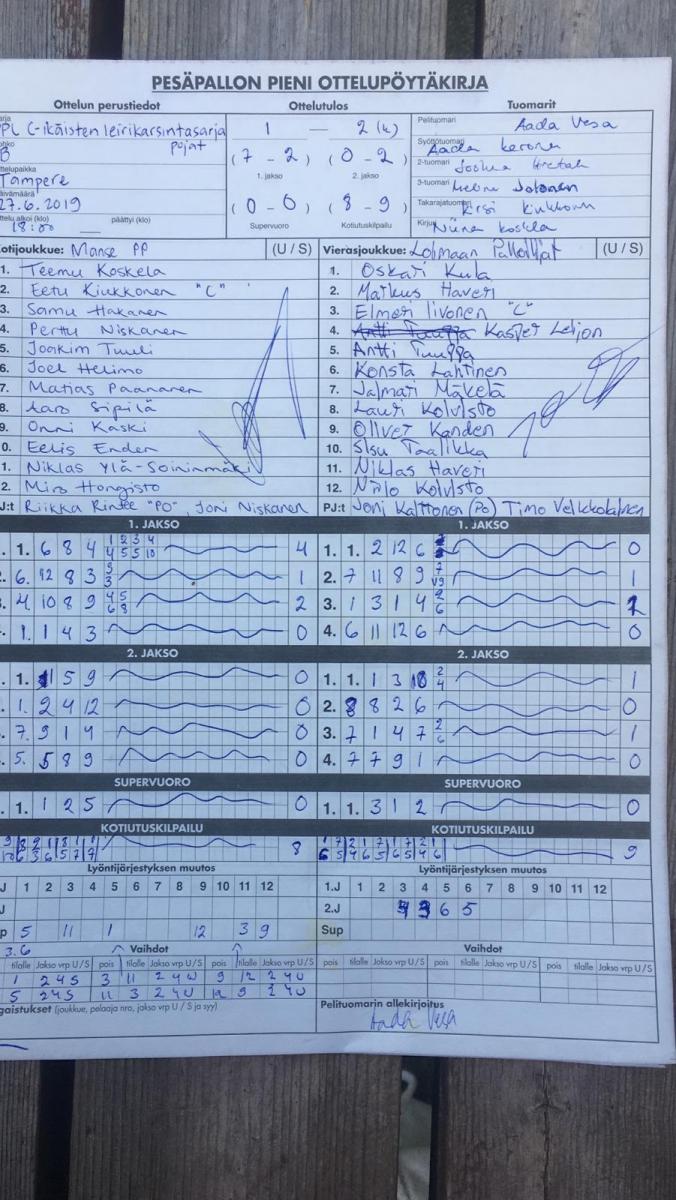 PESÄPALLON PIENI OTTELUPÖYTÄKIRJA
Ottelun perustiedot Ottelutulos Tuomarit
PPL C-ikäisten leirikarsintasarja
Pojat
B
ottelupaikka
Tampere
päivämäärä
27.6.2019
ottelu alkoi (klo) päättyi (klo)
18:00
1 — 2 (k)
(7 - 2) (0 - 2)
1. jakso 2. jakso
(0 - 0) (8 - 9)
Supervuoro Kotiutuskilpailu
Pelituomari Aada Vesa
Syöttötuomari Aada
2-tuomari
3-tuomari
Takarajatuomari Kirsi
Kirjuri Niina Koskela
Kotijoukkue: Manse PP (U / S) Vierasjoukkue: Loimaan Palloilijat (U / S)
1. Teemu Koskela 1. Oskari Kula
2. Eetu Kiukkonen "C" 2. Markus Haveri
3. Samu Hakanen 3. Elmeri Iivonen "C"
4. Perttu Niskanen 4. Antti Tuuppa Kasper
5. Joakim Tuuli 5. Antti Tuuppa
6. Joel Helimo 6. Konsta Lahtinen
7. Matias Paananen 7. Jalmari Mäkelä
8. Aaro Sipilä 8. Lauri Koivisto
9. Onni Kaski 9. Oliver Kanden
10. Eelis Enden 10. Sisu Taalikka
11. Niklas Ylä-Soininmäki 11. Niklas Haveri
12. Miro Hongisto 12. Niilo Koivisto
PJ:t Riikka Rintee "PO", Joni Niskanen PJ:t Joni Kalttonen (Po) Timo Veikkolainen
1. JAKSO 1. JAKSO
1. 6 8 4 4 1. 1. 2 12 6 0
6. 12 8 3 1 2. 7 11 8 9 1
4. 10 8 9 2 3. 1 3 1 4
1. 1 4 3 0 4. 6 11 12 6 0
2. JAKSO 2. JAKSO
1. 1 5 9 0 1. 1. 1 3 10 1
1. 2 4 12 0 2. 8 8 2 6 0
7. 9 1 4 0 3. 7 1 4 7 1
5. 5 8 9 0 4. 7 7 9 1 0
SUPERVUORO SUPERVUORO
1. 1 2 5 0 1. 1. 3 1 2 0
KOTIUTUSKILPAILU KOTIUTUSKILPAILU
8 9
Lyöntijärjestyksen muutos Lyöntijärjestyksen muutos
J 1 2 3 4 5 6 7 8 9 10 11 12 1.J 1 2 3 4 5 6 7 8 9 10 11 12
J 2.J 6 5
p 5 11 1 12 3 9 Sup
3.6 Vaihdot Vaihdot
tilalle Jakso vrp U/S pois tilalle Jakso vrp U/S pois tilalle Jakso vrp U/S pois tilalle Jakso vrp U/S pois tilalle Jakso vrp U/S pois tilalle Jakso vrp U/S
1 2 4 S 3 11 2 4 U 9 12 2 4 U
5 2 4 S 11 3 2 4 U 12 9 2 4 U
gaistukset (joukkue, pelaaja nro, jakso vrp U / S ja syy) Pelituomarin allekirjoitus
Aada Vesa